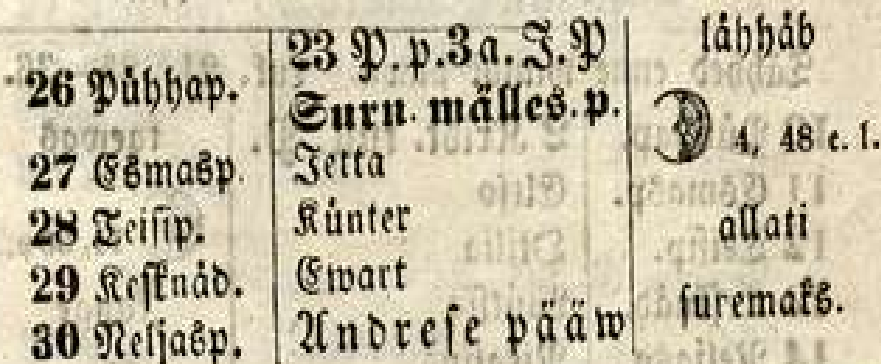 26 Pühhap. 23 P. p. 3 a. J. P lähhäb
Surn. mälles. p. 4, 48 e. l.
27 Esmasp. Jetta
28 Teisip. Künter allati
29 Kesknäd. Ewart suremaks.
30 Neljasp. Andrese pääw